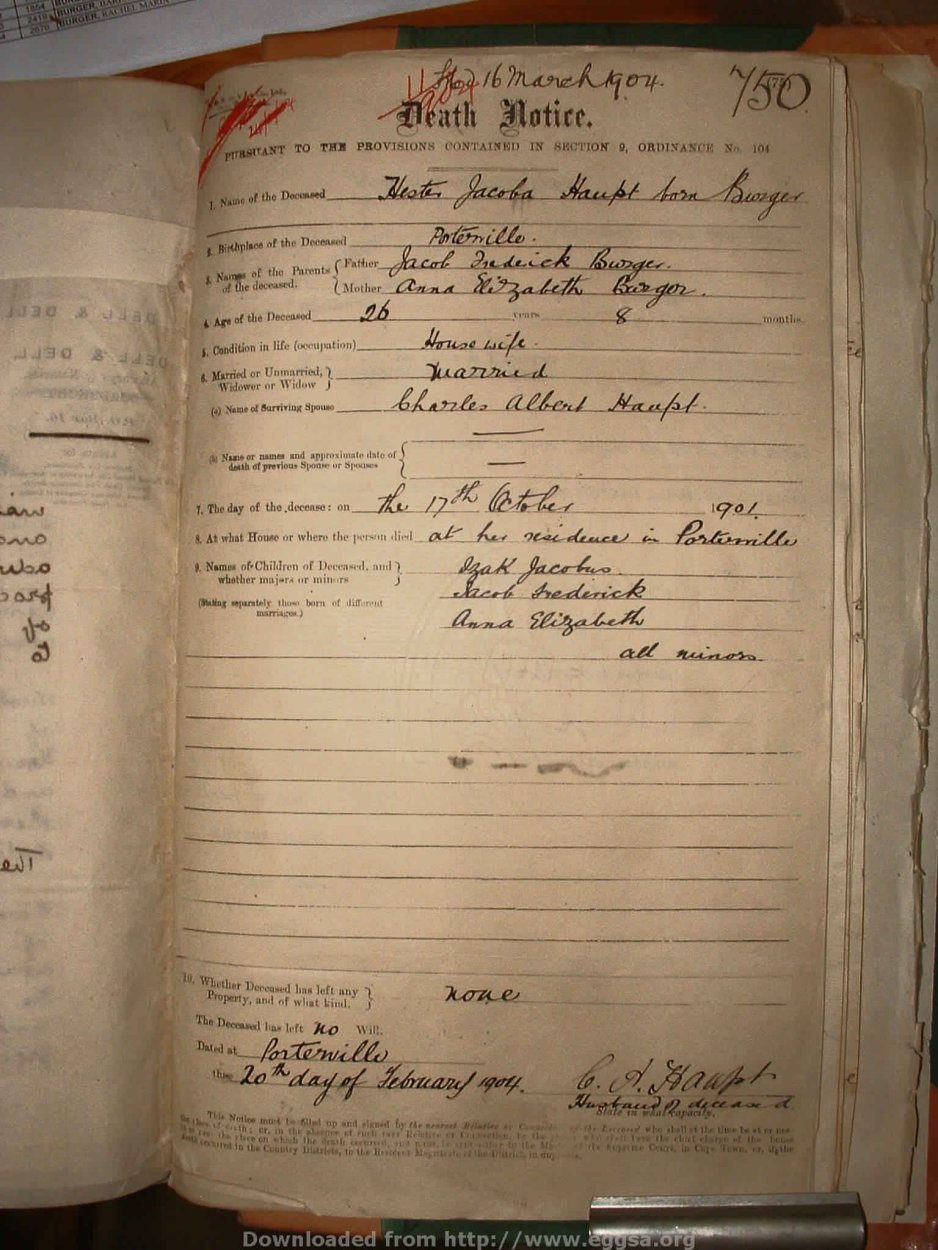 1854 BURGER,
2419 BURGER, BAR
2676 BURGER, RACHEL MARIA
16 March 1904.
750
Death Notice.
PURSUANT TO THE PROVISIONS CONTAINED IN SECTION 9, ORDINANCE No. 104
1. Name of the Deceased Hester Jacoba Haupt born Burger
2. Birthplace of the Deceased Porterville.
3. Names of the Parents of the deceased. Father Jacob Frederick Burger.
Mother Anna Elizabeth Burger.
4. Age of the Deceased 26 years 8 months
5. Condition in life (occupation) Housewife.
6. Married or Unmarried, Widower or Widow Married
(a) Name of Surviving Spouse Charles Albert Haupt.
(b) Name or names and approximate date of
death of previous Spouse or Spouses —
7. The day of the decease: on the 17th October 1901.
8. At what House or where the person died at her residence in Porterville
9. Names of Children of Deceased, and Izak Jacobus
whether majors or minors Jacob Frederick
(Stating separately those born of different
marriages.) Anna Elizabeth
all minors.
10. Whether Deceased has left any
Property, and of what kind. none
The Deceased has left no Will.
Dated at Porterville
this 20th day of February 1904. C. A. Haupt
Husband of deceased
State in what capacity.
This Notice must be filled up and signed by the nearest Relative or
of the Deceased who shall at the time be at or near
the place of death; or, in the absence of such near Relative or Connection, by the
who shall have the chief charge of the house
the place on which the death occurred,
the Supreme Court, in Cape Town, or, if the
death occurred in the Country Districts, to the Resident Magistrate of the District,
Downloaded from http://www.eggsa.org